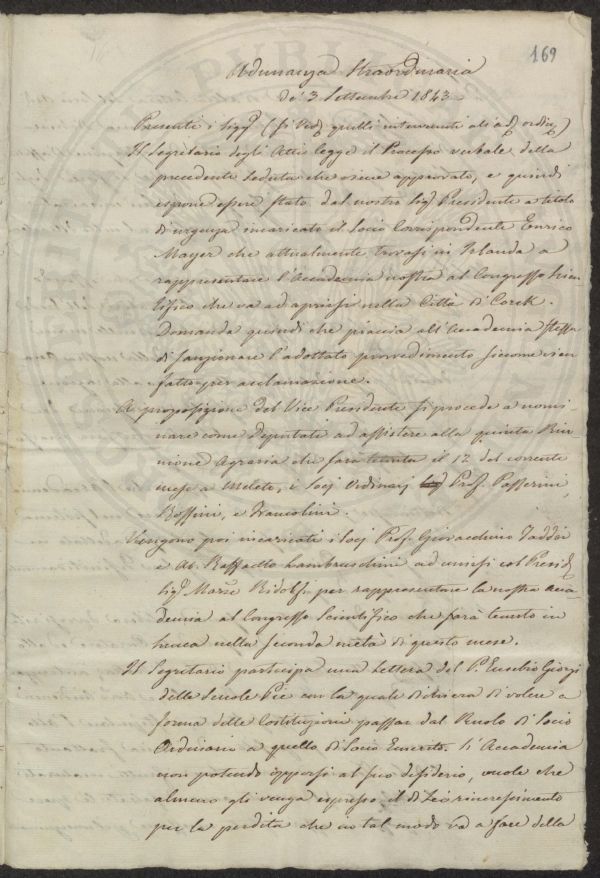 169
Adunanza Straordinaria
de' 3 Settembre 1843
Presenti i Sigri (si Ved. quelli intervenuti alla ordin.)
Il Segretario degli Atti legge il Processo verbale della
precedente seduta che viene approvato, e quindi
espone essere stato dal nostro Sigr Presidente a titolo
d'urgenza incaricato il Socio Corrispondente Enrico
Mayer che attualmente trovasi in Irlanda a
rappresentare l'Accademia nostra al Congresso Scien-
tifico che va ad aprirsi nella Città di Corck.
Domanda quindi che piaccia all'Accademia stessa
di sanzionare l'adottato provvedimento siccome vien
fatto per acclamazione.
A proposizione del Vice Presidente si procede a nomi-
nare come Deputati ad assistere alla quinta Riu-
nione Agraria che sarà tenuta il 12 del corrente
mese a Meleto, i Socj Ordinarj Prof. Passerini,
Boffini, e Francolini.
Vengono poi incaricati i Socj Prof. Giovacchino Taddei
e Ab. Raffaello Lambruschini ad unirsi col Presid.
Sigr March. Ridolfi per rappresentare la nostra Acca-
demia al Congresso Scientifico che sarà tenuto in
Lucca nella seconda metà di questo mese.
Il Segretario partecipa una Lettera del P. Eusebio Giorgi
delle Scuole Pie con la quale dichiara di volere a
forma delle Costituzioni passar dal Ruolo di Socio
Ordinario a quello di Socio Emerito. L'Accademia
non potendo opporsi al suo desiderio, vuole che
almeno gli venga espresso il di Lei rincrescimento
per la perdita che in tal modo va a fare della